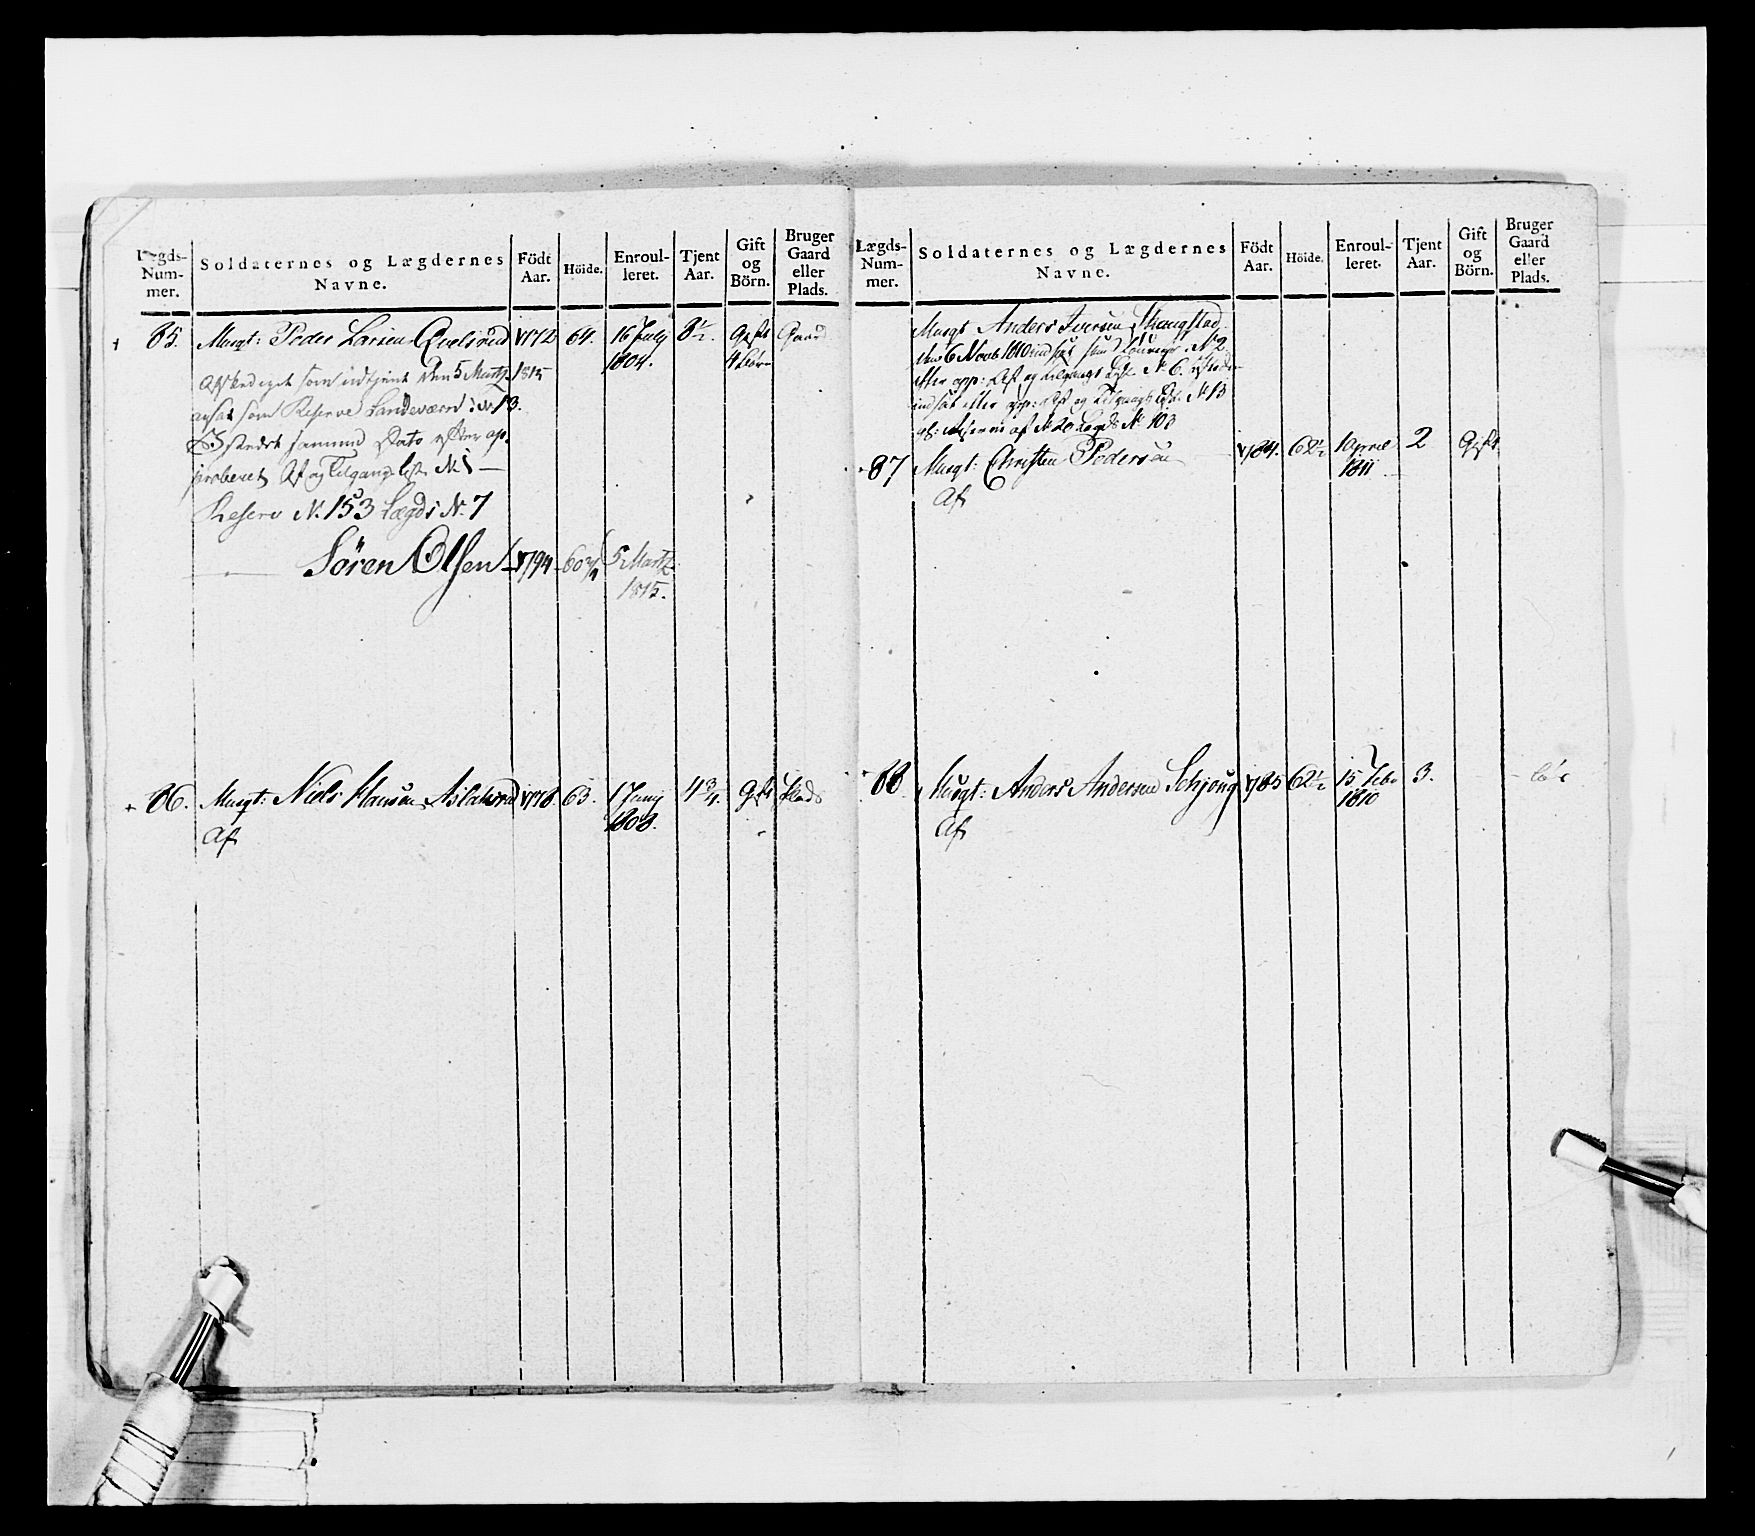 Lægds-Num-mer. Soldaternes og Lægdernes Navne. Födt Aar. Höide. Enroul-leret. Tjent Aar. Gift og Börn. Bruger Gaard eller Plads.
85. Musqt: Peder Larsen 1772 64. 16 July 1804. 8½. Gift 4 Börn Gaard
Afskediget som udtjent den 5 Martz 1815
ansat som Reserve Landeværn: No 13.
samme Dato efter ap-
proberet Af og Tilgang Liste No 1
Reserv No. 153 Lægds No. 7
Sören Olsen 1794 60¾ 5 Martz 1815.
86. Musqt: Niels Hansen 1778 63. 1 Juny 1808. 4¾. Gift Plads
Af
Lægds-Num-mer. Soldaternes og Lægdernes Navne. Födt Aar. Höide. Enroul-leret. Tjent Aar. Gift og Börn. Bruger Gaard eller Plads.
Musqt Anders Iversen
den 6 Novb 1810 indsat som No 2
efter app: Af og Tilgangs Liste No 6.
indsat efter app: Af og Tilgangs Liste No 13
af No 20 Lægds No 103
87 Musqt: Christen Pedersen 1784. 62½ 1 April 1811 2 Gift
Af
88 Musqt: Anders Andersen Schjong 1785 62½ 15 Febr 1810 3. lös
Af